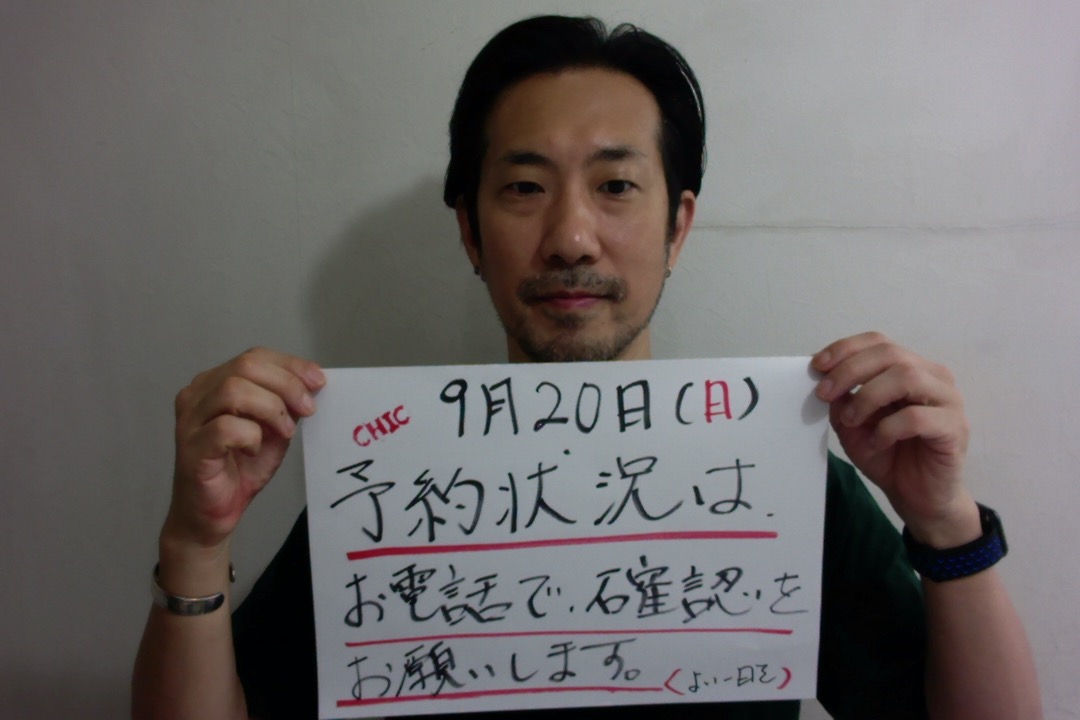 CHIC 9月20日(日)
予約状況は
お電話で、確認を
お願いします。(よい一日を)